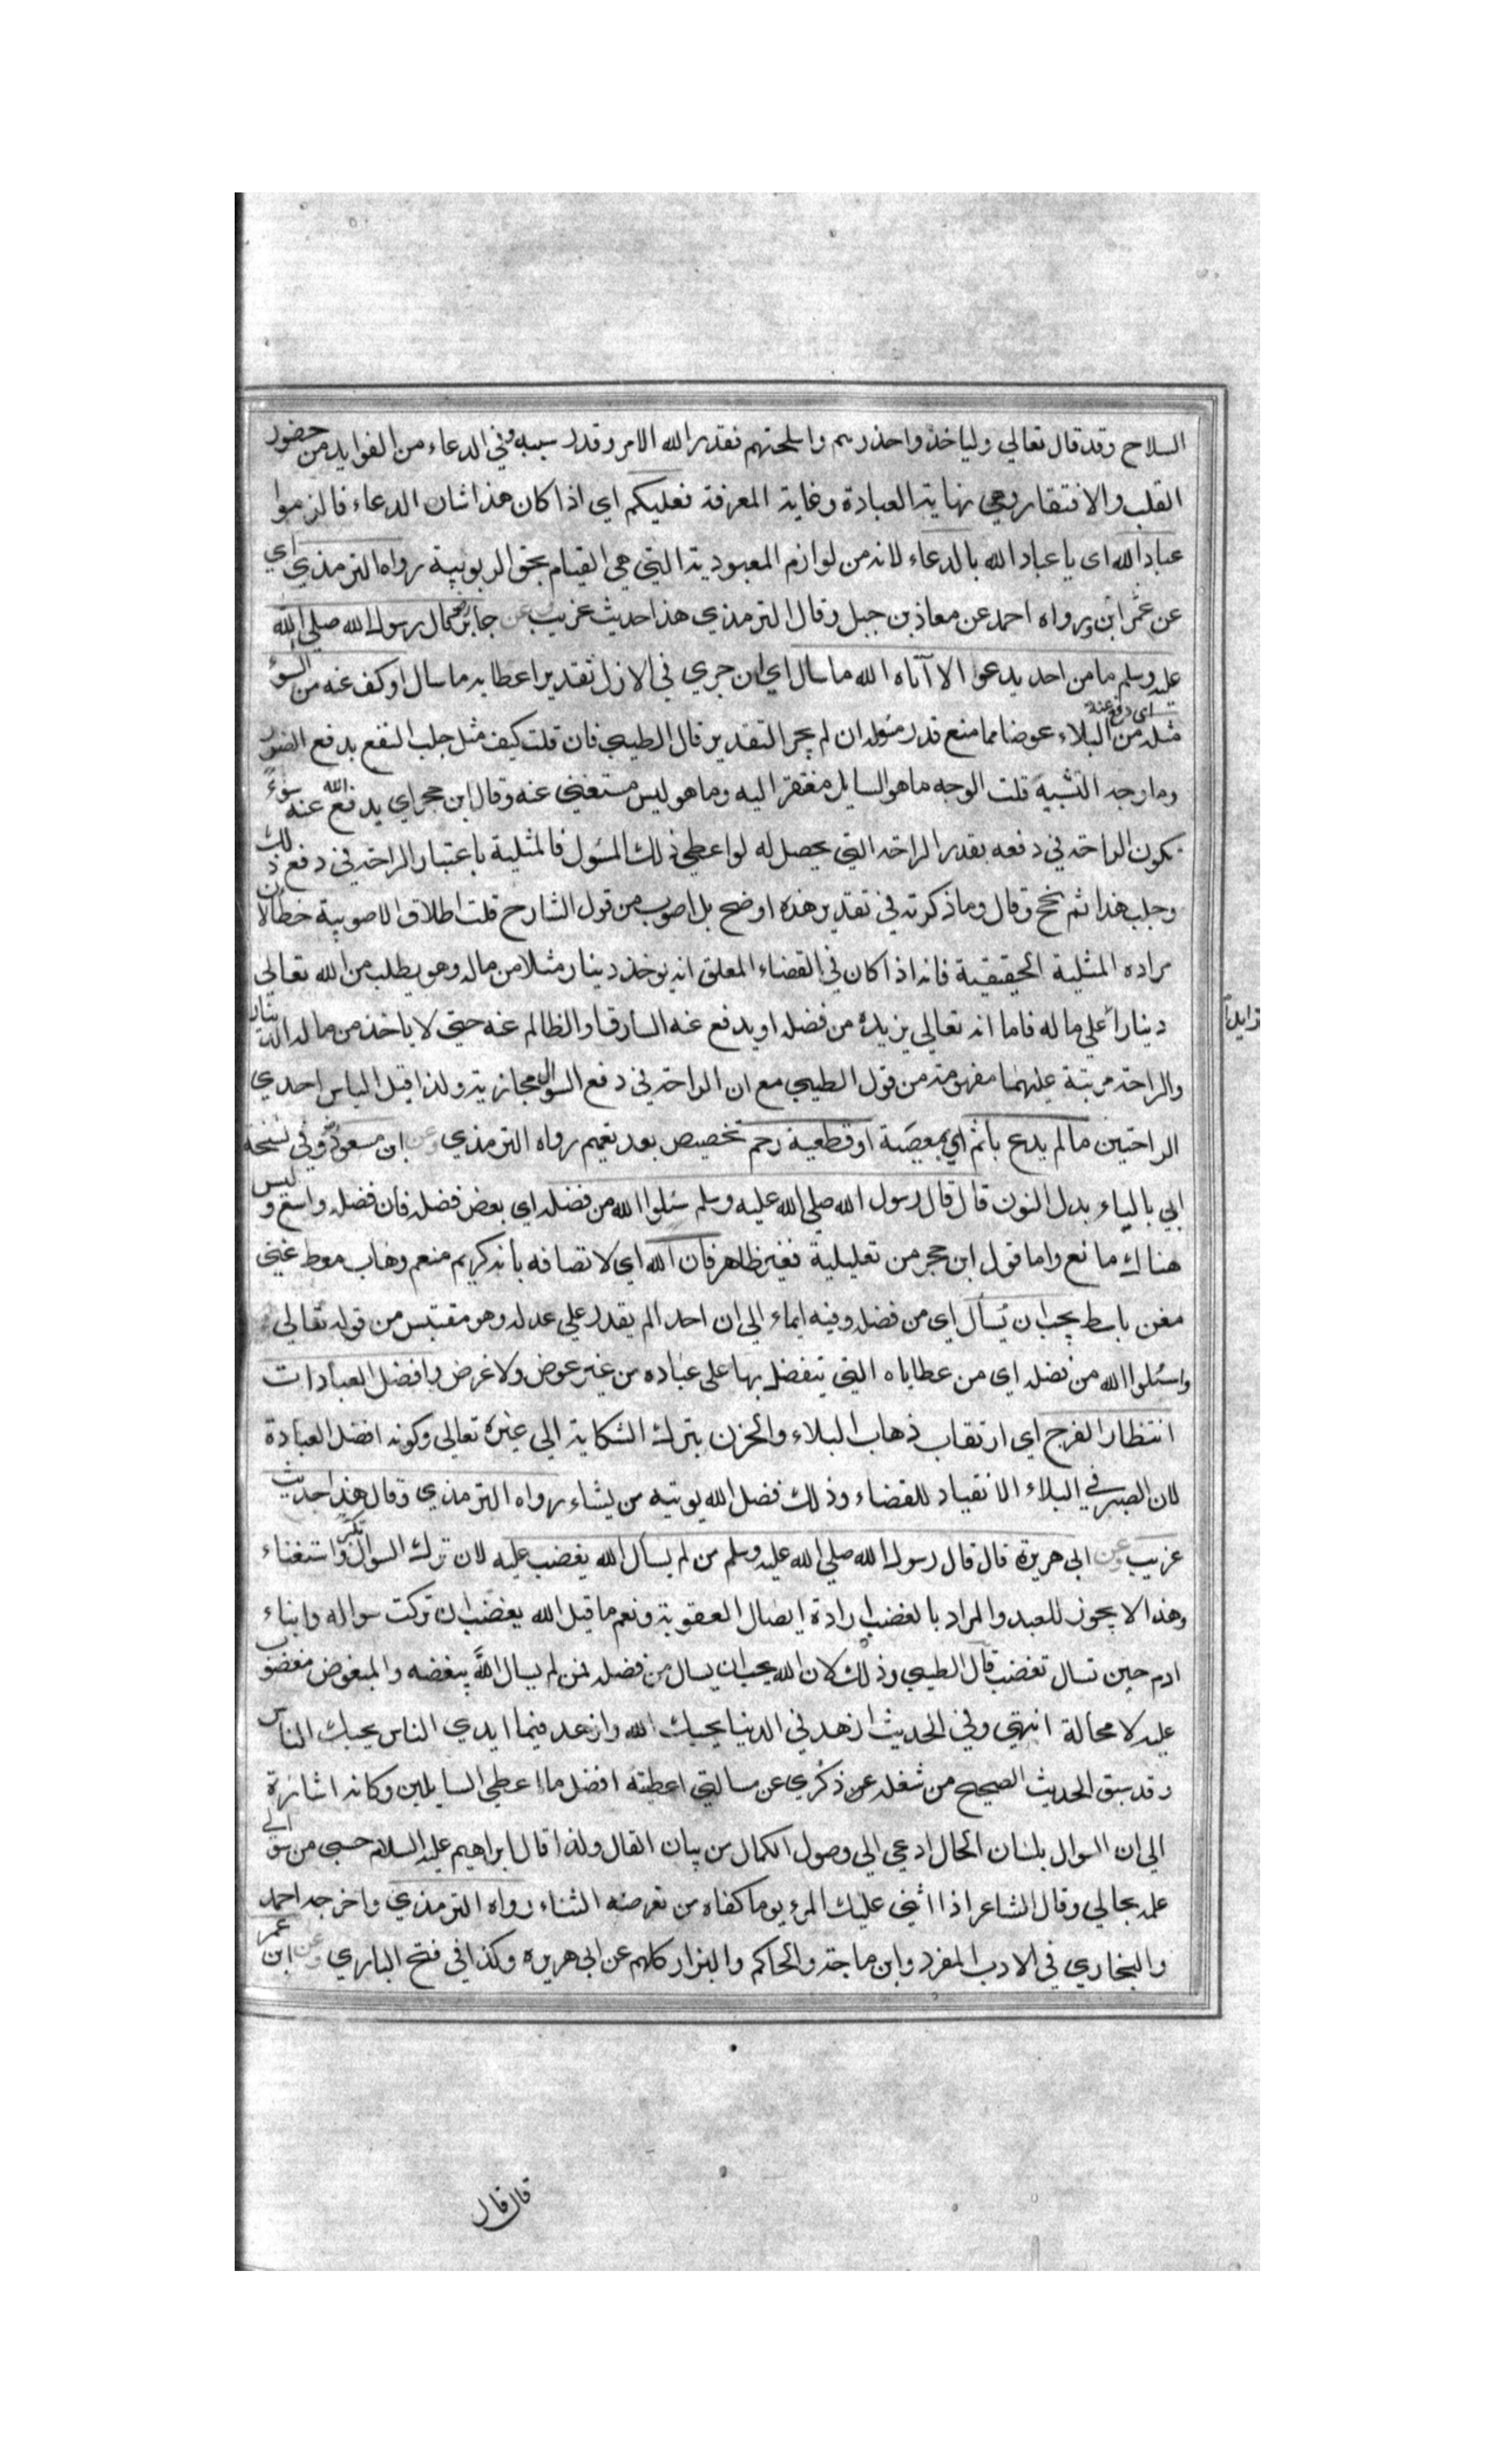 السلاح وقد قال تعالي ولياخذوا حذرهم واسلحتهم فقدر الله الامر وقدر سببه وفي الدعاء من الفوايد من حضور
القلب والافتقار وهي نهاية العبادة وغاية المعرفة فعليكم اي اذا كان هذا شان الدعاء فالزموا
عباد الله اي يا عباد الله بالدعاء لانه من لوازم العبودية التي هي القيام بحق الربوبية رواه الترمذي اي
عن عمر ابن ورواه احمد عن معاذ بن جبل وقال الترمذي هذا حديث غريب وعن جابر قال رسول الله صلي الله
عليه وسلم ما من احد يدعو الا آتاه الله ما سال اي ان جري في الازل تقدير اعطايه ما سال او كف عنه من السوء
اي دفع عنه
مثله من البلاء عوضا مما منع قدر مسؤله ان لم يجر التقدير قال الطيبي فان قلت كيف مثل جلب النفع بدفع الضرر
وما وجه التشبيه قلت الوجه ما هو السايل مفتقر اليه وما هو ليس مستغني عنه وقال ابن حجر اي يدفع الله عنه سوء
تكون الراحة في دفعه بقدر الراحة التي يحصل له لو اعطي ذلك المسؤل فالمثلية باعتبار الراحة في دفع ذلك
وجلب هذا ثم نجح وقال وما ذكرته في تقدير هذه اوضح بل اصوب من قول الشارح قلت اطلاق الاصوبية خطا لان
مراده المثلية الحقيقية فانه اذا كان في القضاء المعلق انه يوخذ دينار مثلا من ماله وهو يطلب من الله تعالي
دينارا علي ماله فاما انه تعالي يزيده من فضله او يدفع عنه السارق او الظالم عنه حتي لا ياخذ من ماله الدينار
زايدا
والراحة مرتبة عليهما مفهومة من قول الطيبي مع ان الراحة في دفع السوال مجازية ولذا قيل الياس احدي
الراحتين ما لم يدع باثم اي بمعصية او قطعية رحم تخصيص بعد تعميم رواه الترمذي وعن ابن مسعود وفي نسخة
ابي بالياء بدل النون قال قال رسول الله صلي الله عليه وسلم سئلوا الله من فضله اي بعض فضله فان فضله واسع وليس
هناك مانع واما قول ابن حجر من تعليلية فغير ظاهر فان الله اي لاتصافه بانه كريم منعم وهاب معط غني
مغن باسط يحب ان يسأل اي من فضله وفيه ايماء الي ان احدا لم يقدر علي عدله وهو مقتبس من قوله تعالي
واسئلوا الله من فضله اي من عطاياه التي يتفضل بها علي عباده من غير عوض ولا غرض وافضل العبادات
انتظار الفرج اي ارتقاب ذهاب البلاء والحزن بترك الشكاية الي غيره تعالي وكونه افضل العبادة
لان الصبر في البلاء الانقياد للقضاء وذلك فضل الله يوتيه من يشاء رواه الترمذي وقال هذا حديث
غريب وعن ابي هريرة قال قال رسول الله صلي الله عليه وسلم من لم يسأل الله يغضب عليه لان ترك السوال تكبر واستغناء
وهذا لا يجوز للعبد والمراد بالغضب ارادة ايصال العقوبة ونعم ما قيل الله يغضب ان تركت سواله وابناء
ادم حين تسال تغضب قال الطيبي وذلك لان الله يحب ان يسال من فضله فمن لم يسال الله يبغضه والمبغوض مغضوب
عليه لا محالة انتهي وفي الحديث ازهد في الدنيا يحبك الله وازهد فيما ايدي الناس يحبك الناس
وقد سبق الحديث الصحيح من شغله عن ذكري عن مسالتي اعطيته افضل ما اعطي السايلين وكانه اشارة
الي ان السوال بلسان الحال ادعي الي وصول الكمال من بيان القال ولذا قال ابراهيم عليه السلام حسبي من سوالي
علمه بحالي وقال الشاعر اذا اثني عليك المرء يوما كفاه من تعرضه الثناء رواه الترمذي واخرجه احمد
والبخاري في الادب المفرد وابن ماجة والحاكم والبزار كلهم عن ابي هريرة وكذا في فتح الباري وعن ابن عمر
قال قال